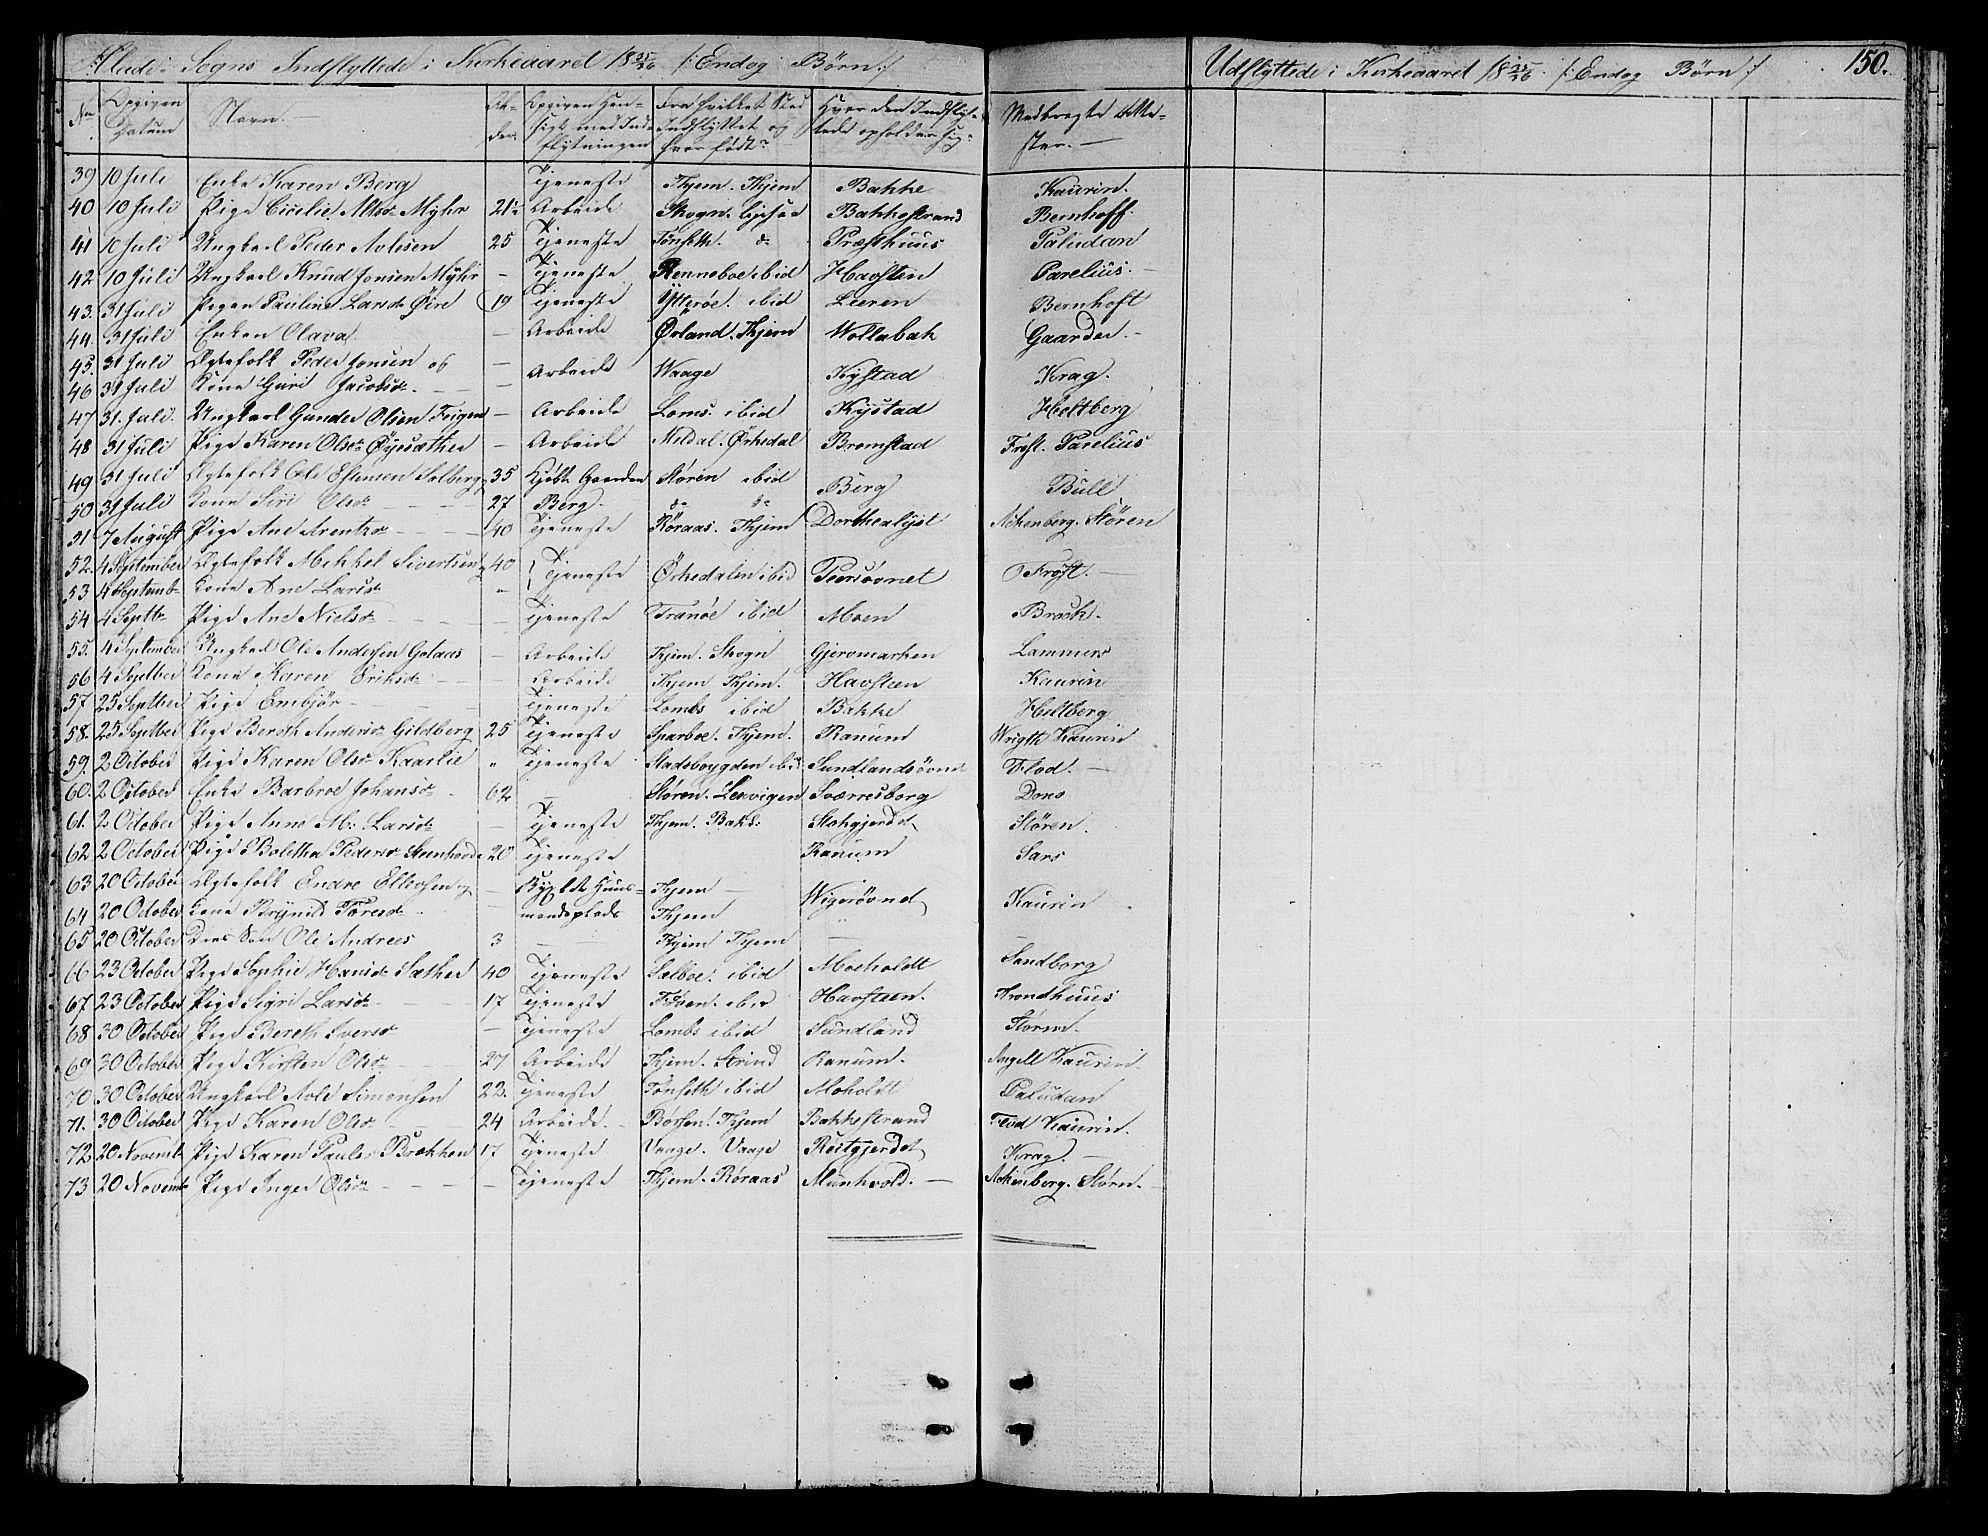 Hlade Sogns Indflyttede i Kirkeaaret 18 25/26 /: Endog Børn :/
Udflyttede i Kirkeaaret 18 25/26 /: Endog Børn :/ 150.
No Opgiven Datum Navn. Opgiven Hensigt med Indflytningen Fra hvilket Sted Indflyttet og hvor født? Hvor den Indflyttede opholder sig. Medbragte Attester.
39 10 Juli Enke Karen Berg Tjeneste Thjem. Thjem Bakke Kaurin.
40 10 Juli Pige Cicelie Myhr 21 Arbeide Skogn. Bakkestrand Bernhoff.
41 10 Juli Ungkarl Peder 25 Tjeneste Tønseth. do Præsthuus Paludan
42 10 Juli Ungkarl Knud Jonsen Myhr - Tjeneste Renneboe ibid Havsten Parelius.
43. 31 Juli Pigen Pauline Larsdr Øre 19 Tjeneste Ytterøe. ibid Leeren Bernhoft
44. 31 Juli Enken Olava - Arbeide Ørland. Thjem Wollabak Gaarder.
45. 31 Juli Ægtefolk Peder Jonsen og - Arbeide Waage Kystad Krag.
46 31 Juli Kone Guri Jacobsdr. -
47 31. Juli. Ungkarl Gunder Olsen - Arbeide Loms. ibid Kystad Heltberg
48 31 Juli Pige Karen Olsdr - Arbeide Meldal. Ørkedal Bromstad Frost. Parelius
49 31 Juli Ægtefolk Ole Estensen Solberg 35 Kjøbt Gaarden Støren ibid Berg Bull
50 31 Juli Kone Siri Olsdr 27 Berg. do do
51 7 August Pige Ane Arentzdr 40 Tjeneste Røraas. Thjem Dorthealyst Støren
52. 4 September Ægtefolk Mikkel Sivertsen 40 Tjeneste Ørkedalen ibid Frost.
53 4 Septemb Kone Ane Larsdr "
54 4 Septbr Pige Ane Nielsdr - Tjeneste Tranøe ibid Moen Brock.
55. 4 September Ungkarl Ole Andersen - Arbeide Thjem. Skogn Lammers
56 4 Septber Kone Karen Eriksdr - Arbeide Thjem Thjem. Havsteen Kaurin
57 25 Septber Pige Embjør Tjeneste Lombs ibid Bakke Heltberg
58. 25 Septber Pige Bereth Andersdr Gildberg 25 Tjeneste Sparboe. Thjem. Ranum Wrigth Kaurin
59. 2 October Pige Karen Olsdr " Tjeneste Stadsbøygden ibid Flod.
60. 2 October Enke Barbroe Johansdr 62 - Støren. Sværresborg Dons
61. 2 October Pige Anne M: Larsdr - Tjeneste Thjem. Bakl: Støren.
62 2 October Pige Bolitha Pedersdr 20 Tjeneste Ranum Sars
63 20 October Ægtefolk Endre Ellevsen og - Bygslet Huus= Thjem Kaurin
64 20 October Kone Brynild - mandsplads Thjem
65 20 October Dres Søn Ole Andreas 3 - Thjem Thjem
66 23 October Pige Sophie Hansdr Sæther 40 Tjeneste Sælboe. ibid Moeholdt Sandborg
67 23 October Pige Sigri Larsdr 17 Tjeneste Havsteen. Trondhuus
68 30 October Pige Bereth Iversdr - Tjeneste Lombs ibid Sundland Støren.
69 30 October Pige Kirsten Olsdr 27 Arbeide Thjem. Strind Ranum. Angell Kaurin
70 30 October Ungkarl Simonsen 22. Tjeneste Tønseth ibid Moholdt Paludan
71. 30 October Pige Karen Olsdr 24 Arbeide. Børsen. Thjem Bakkestrand Flod Kaurin.
72 20 Novemb Pige Karen Paulsdr Brækken 17 Tjeneste Vaage. Vaage Krag.
73 20 Novemb Pige Inger Olsdr - Tjeneste Thjem. Røraas Munkvold. Størn.